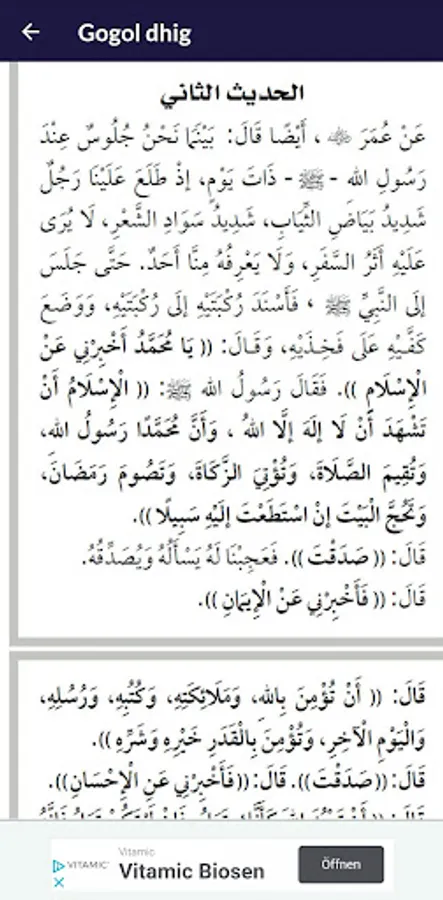 Gogol dhig
الحديث الثاني
عَنْ عُمَرَ ﷺ ، أَيْضًا قَالَ: بَيْنَمَا نَحْنُ جُلُوسٌ عِنْدَ
رَسُولِ الله - ﷺ - ذَاتَ يَوْمٍ، إِذْ طَلَعَ عَلَيْنَا رَجُلٌ
شَدِيدُ بَيَاضِ الثِّيَابِ، شَدِيدُ سَوَادِ الشَّعْرِ، لَا يُرَى
عَلَيْهِ أَثَرُ السَّفَرِ، وَلَا يَعْرِفُهُ مِنَّا أَحَدٌ. حَتَّى جَلَسَ
إِلَى النَّبِيِّ ﷺ ، فَأَسْنَدَ رُكْبَتَيْهِ إِلَى رُكْبَتَيْهِ، وَوَضَعَ
كَفَّيْهِ عَلَى فَخِذَيْهِ، وَقَالَ: (( يَا مُحَمَّدُ أَخْبِرْنِي عَنْ
الْإِسْلَامِ )). فَقَالَ رَسُولُ الله ﷺ: (( الْإِسْلَامُ أَنْ
تَشْهَدَ أَنْ لَا إِلَهَ إِلَّا اللهُ ، وَأَنَّ مُحَمَّدًا رَسُولُ الله،
وَتُقِيمَ الصَّلَاةَ، وَتُؤْتِيَ الزَّكَاةَ، وَتَصُومَ رَمَضَانَ،
وَتَحُجَّ الْبَيْتَ إِنْ اسْتَطَعْتَ إِلَيْهِ سَبِيلًا )).
قَالَ: (( صَدَقْتَ )). فَعَجِبْنَا لَهُ يَسْأَلُهُ وَيُصَدِّقُهُ.
قَالَ: (( فَأَخْبِرْنِي عَنْ الْإِيمَانِ )).
قَالَ: (( أَنْ تُؤْمِنَ بِالله، وَمَلَائِكَتِهِ، وَكُتُبِهِ، وَرُسُلِهِ،
وَالْيَوْمِ الْآخِرِ، وَتُؤْمِنَ بِالْقَدَرِ خَيْرِهِ وَشَرِّهِ )).
قَالَ: ((صَدَقْتَ)). قَالَ: ((فَأَخْبِرْنِي عَنِ الْإِحْسَانِ)).
Vitamic
VITAMIC
Vitamic Biosen
Öffnen